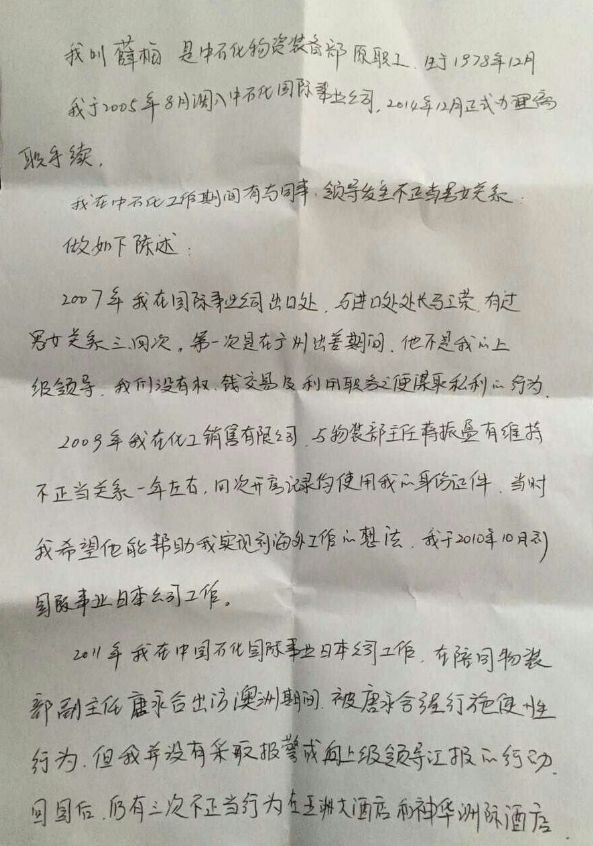 我叫薛梅 是中石化物资装备部原职工、生于1978年12月
我于2005年8月调入中石化国际事业公司,2014年12月正式办理离
职手续。
我在中石化工作期间有与同事、领导发生不正当男女关系.
做如下陈述:
2007年我在国际事业公司出口处、与进口处处长马正荣、有过
男女关系三、四次。第一次是在广州出差期间、他不是我的上
级领导、我们没有权、钱交易及利用职务之便谋取私利的行为.
2009年我在化工销售有限公司、与物装部主任蒋振盈有维持
不正当关系一年左右,四次开房记录均使用我的身份证件、当时
我希望他能帮助我实现到海外工作的想法、我于2010年10月到
国际事业日本公司工作。
2011年我在中国石化国际事业日本公司工作、在陪同物装
部副主任唐永合出访澳洲期间、被唐永合强行施使性
行为、但我并没有采取报警或向上级领导汇报的行动.
回国后、仍有三次不正当行为在亚洲大酒店和神华洲际酒店.